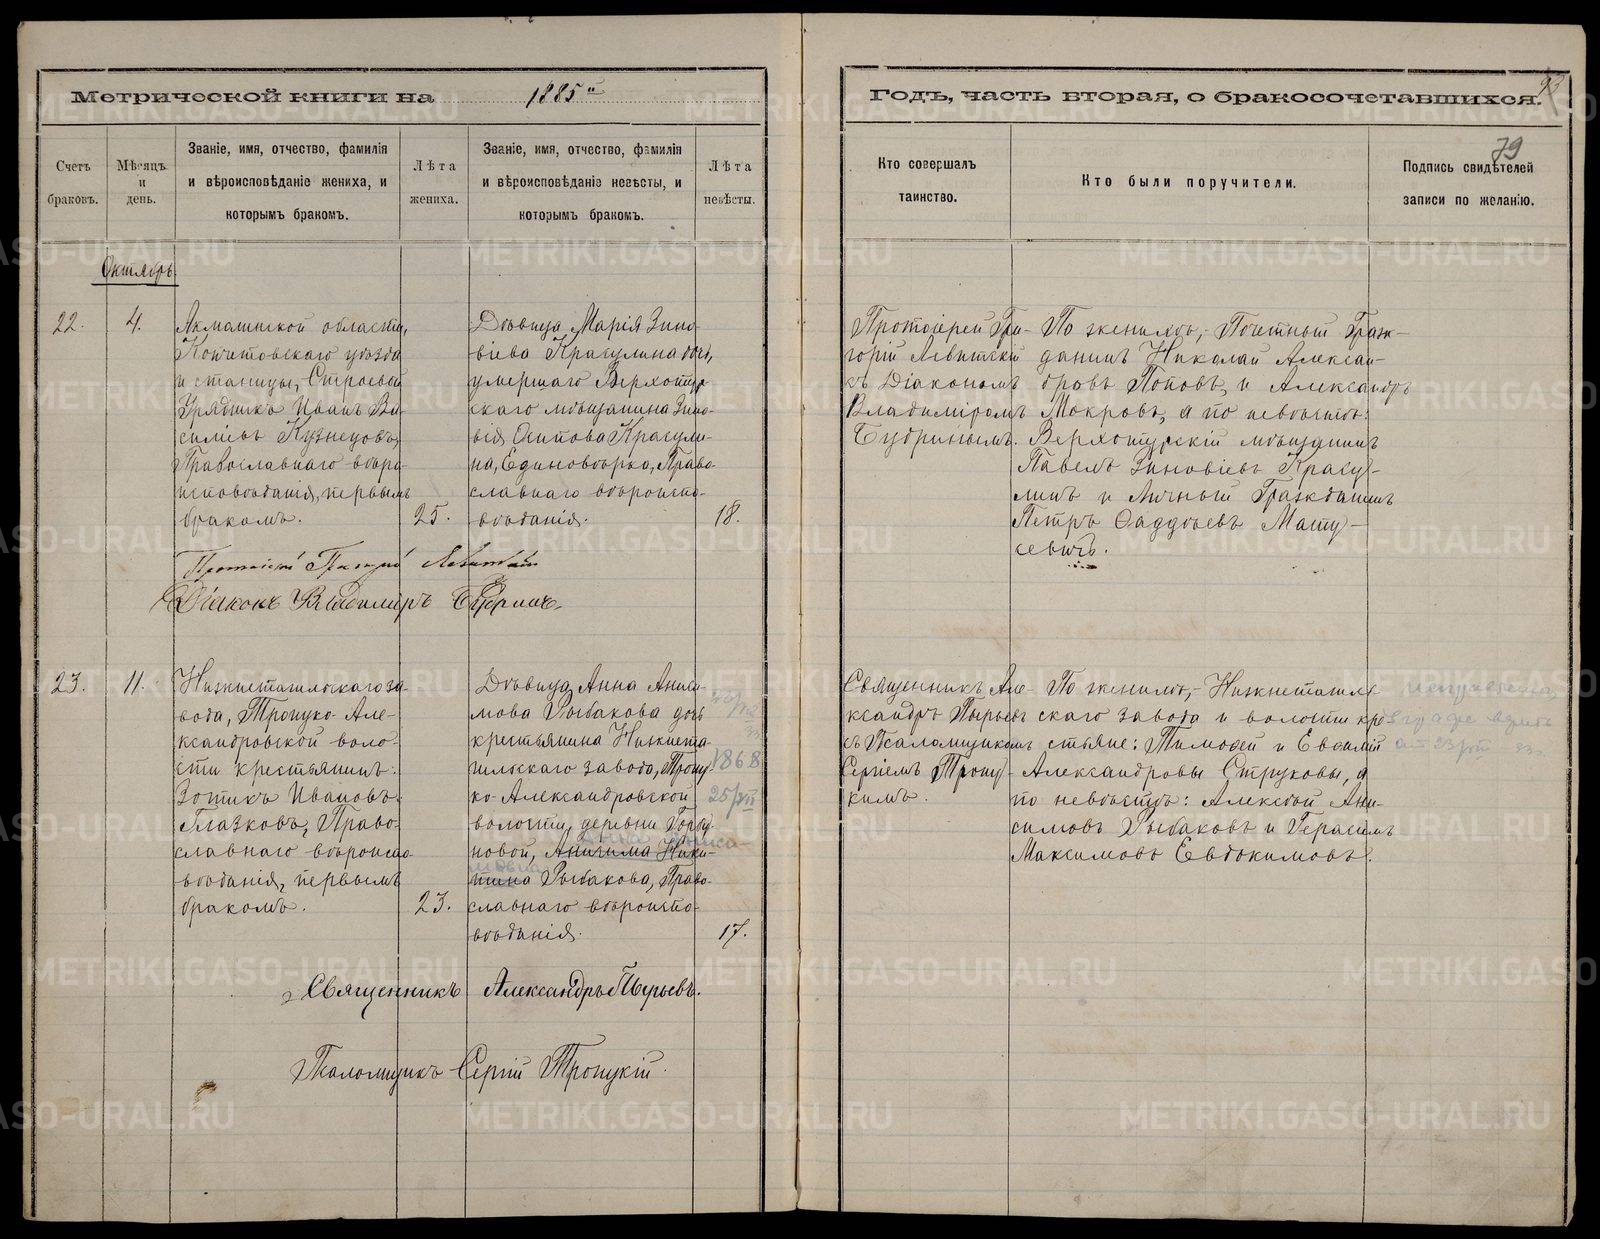 Метрической книги на 1885й
Годъ, часть вторая, о бракосочетавшихся.
93
79
Счетъ браковъ.
Мѣсяцъ и день.
Званіе, имя, отчество, фамилія
и вѣроисповѣданіе жениха, и
которымъ бракомъ.
Лѣта жениха.
Званіе, имя, отчество, фамилія
и вѣроисповѣданіе невѣсты, и
которымъ бракомъ.
Лѣта невѣсты.
Кто совершалъ
таинство.
Кто были поручители.
Подпись свидѣтелей
записи по желанію.
Октябрь
22.
4.
Акмолинской области,
Кокчитовскаго уѣзда
и станицы, Строевой
Урядникъ Иванъ Ва-
силіевъ Кузнецовъ,
Православнаго вѣро-
исповѣданія, первымъ
бракомъ.
25.
Дѣвица Марія Зино-
віева Красулина дочь,
умершаго Верхотур-
скаго мѣщанина Зино-
вія Осипова Красули-
на, Единовѣрка, Право-
славнаго вѣроиспо-
вѣданія.
18.
Протоіерей Гри-
горій Левитскій
съ Діакономъ
Владиміромъ
Будринымъ.
По женихѣ, Почетный Граж-
данинъ Николай Алексан-
дровъ Поповъ, и Александръ
Мокровъ, а по невѣстѣ:
Верхотурскій мѣщанинъ
Павелъ Зиновіевъ Красу-
линъ и Личный Гражданинъ
Петръ Фаддѣевъ Мату-
севичъ.
Протоіерей Григорій Левитскій
Діаконъ Владиміръ Будринъ
23.
11.
Нижнетагильскаго за-
вода, Троицко-Але-
ксандровской воло-
сти крестьянинъ
Зотикъ Ивановъ
Глазковъ, Право-
славнаго вѣроиспо-
вѣданія, первымъ
бракомъ.
23.
Дѣвица Анна Аниси-
мова Рыбакова дочь
крестьянина Нижнета-
гильскаго завода, Троиц-
ко-Александровской
волости, деревни Горбу-
новой, Анисима Ники-
тина Рыбакова, Право-
славнаго вѣроиспо-
вѣданія.
17.
1868
25/VII
Священникъ Але-
ксандръ Пырьевъ
съ Псаломщикомъ
Сергіемъ Троиц-
кимъ.
По женихѣ, Нижнетагиль-
скаго завода и волости кре-
стьяне: Тимофей и Евфимій
Александровы Струковы, а
по невѣстѣ: Алексѣй Ани-
симовъ Рыбаковъ и Герасимъ
Максимовъ Евдокимовъ.
Священникъ Александръ Пырьевъ.
Псаломщикъ Сергій Троицкій.
METRIKI.GASO-URAL.RU